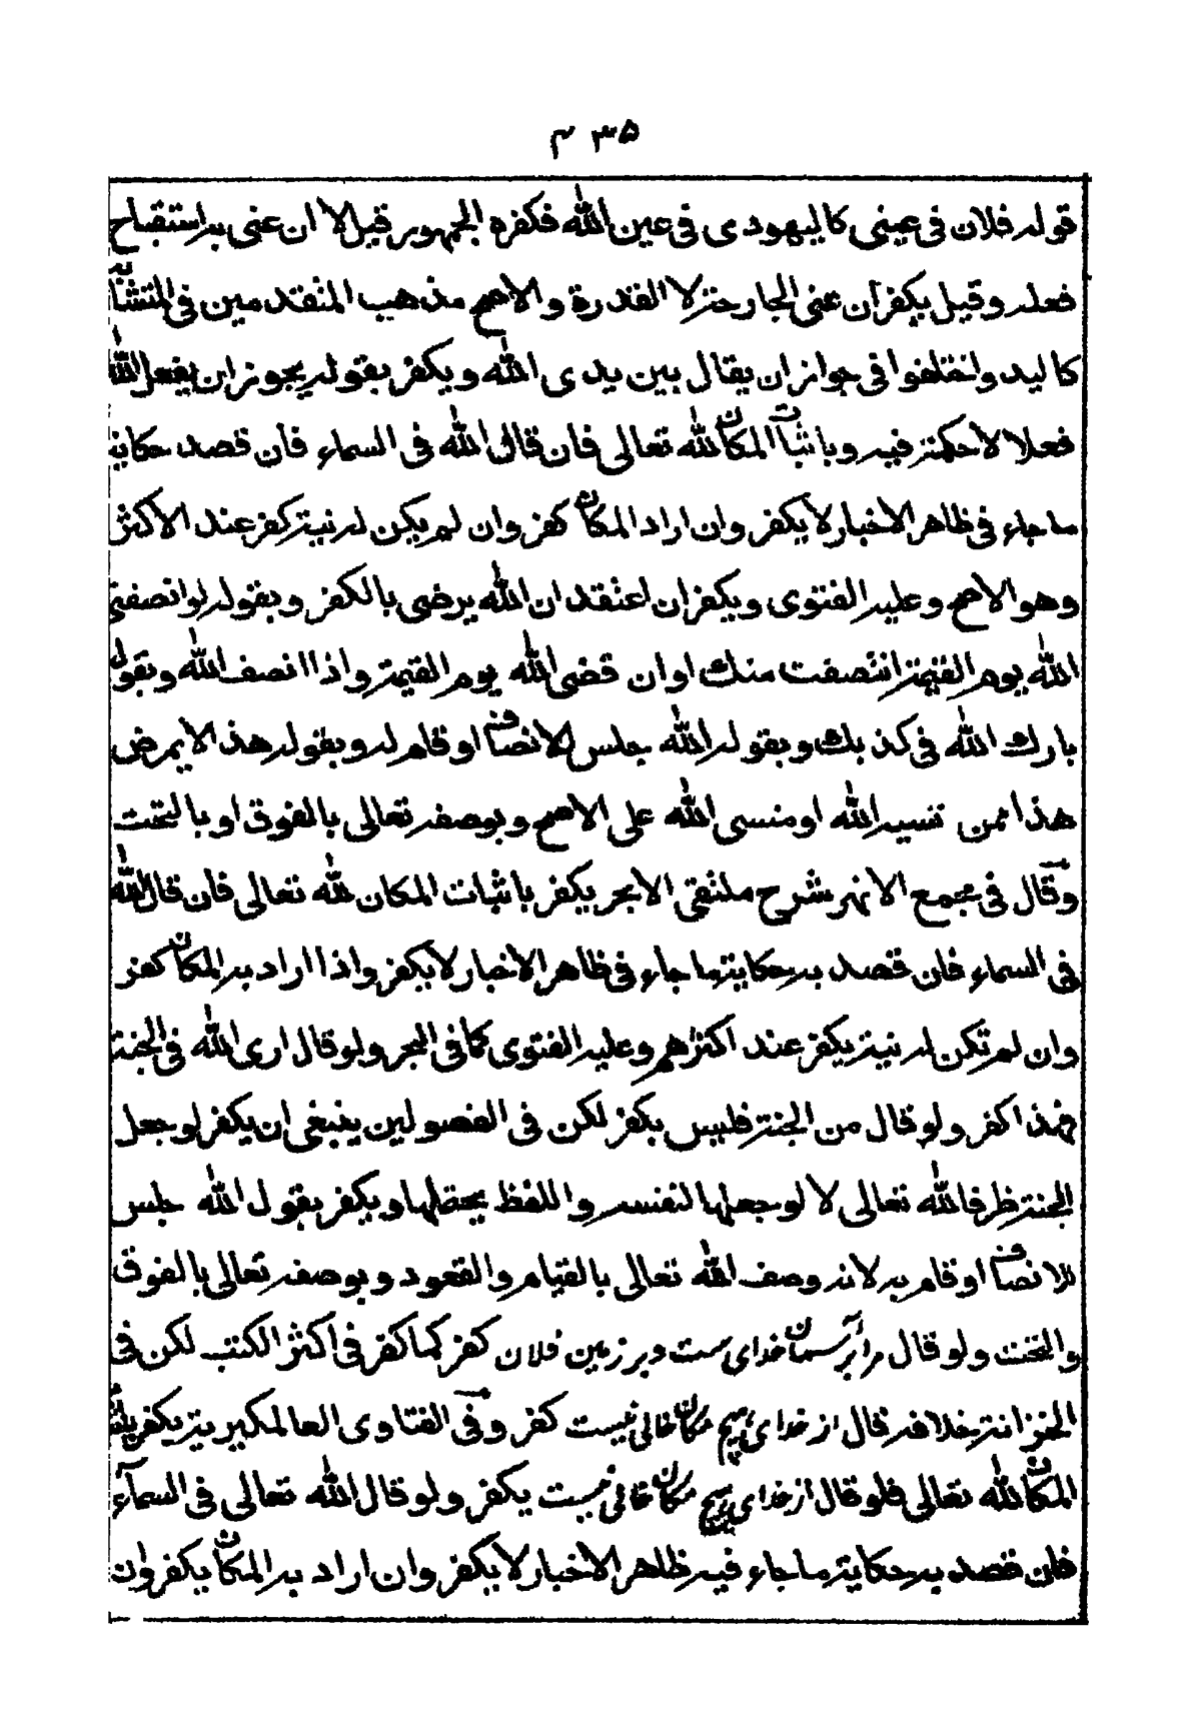 ۴۳۵
قوله فلان فى عينى كاليهودى فى عين الله فكفره الجمهور قيل لا ان عنى به استقباح
فعله وقيل يكفر ان عنى الجارحة لا القدرة والاصح مذهب المتقدمين فى المتشابه
كاليد واختلفوا فى جواز ان يقال بين يدى الله ويكفر بقوله يجوز ان يفعل الله
فعلا لا حكمة فيه وباثبات المكان لله تعالى فان قال الله فى السماء فان قصد حكاية
ما جاء فى ظاهر الاخبار لا يكفر وان اراد المكان كفر وان لم يكن له نية كفر عند الاكثر
وهو الاصح وعليه الفتوى ويكفر ان اعتقد ان الله يرضى بالكفر وبقوله لو انصفنى
الله يوم القيمة انتصفت منك او ان قضى الله يوم القيمة واذا انصف الله وبقوله
بارك الله فى كذبك وبقوله الله جلس للانصاف او قام له وبقوله هذا لا يمرض
هذا ممن نسيه الله او منسى الله على الاصح وبوصفه تعالى بالفوق او بالتحت
وقال فى مجمع الانهر شرح ملتقى الابحر يكفر باثبات المكان لله تعالى فان قال الله
فى السماء فان قصد به حكاية ما جاء فى ظاهر الاخبار لا يكفر واذا اراد به المكان كفر
وان لم تكن له نية يكفر عند اكثرهم وعليه الفتوى كما فى البحر ولو قال ارى الله فى الجنة
فهذا كفر ولو قال من الجنة فليس بكفر لكن فى الفصولين ينبغى ان يكفر لو جعل
الجنة ظرفا لله تعالى لا لو جعلها لنفسه واللفظ يحتملها ويكفر بقول الله جلس
للانصاف او قام به لانه وصف الله تعالى بالقيام والقعود وبوصفه تعالى بالفوق
والتحت ولو قال مرا بر آسمان خداى ست وبر زمين فلان كفر كما كفر فى اكثر الكتب لكن فى
الخزانة خلافه قال از خداى هيچ مكان خالى نيست كفر وفى الفتاوى العالمكيرية يكفر باثبات
المكان لله تعالى فلو قال از خداى هيچ مكان خالى نيست يكفر ولو قال الله تعالى فى السمآء
فان قصد به حكاية ما جاء فيه ظاهر الاخبار لا يكفر وان اراد به المكان يكفر وان